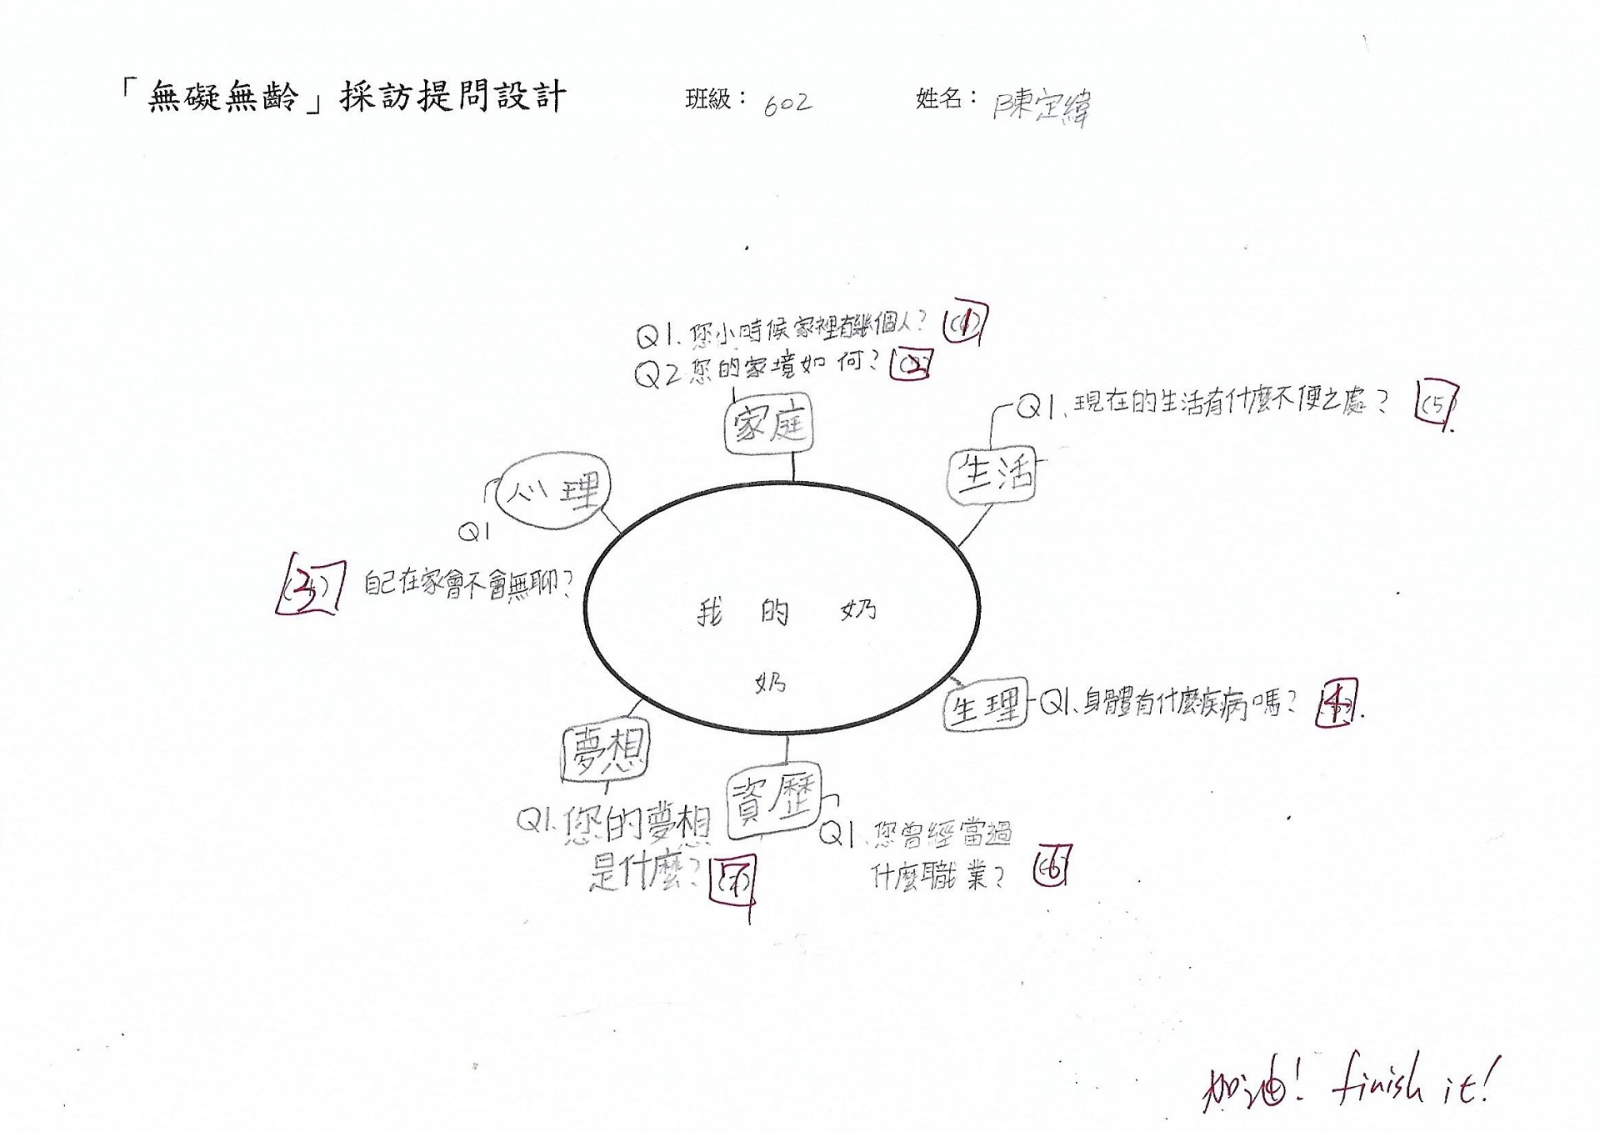 「無礙無齡」採訪提問設計 班級：602 姓名：陳定緯
Q1.您小時候家裡有幾個人？(1)
Q2.您的家境如何？(2)
家庭
Q1、現在的生活有什麼不便之處？(5)
生活
心理
Q1
自己在家會不會無聊？
我的奶
奶
生理 Q1、身體有什麼疾病嗎？(4)
夢想
Q1.您的夢想
是什麼？(7)
資歷
Q1.您曾經當過
什麼職業？(6)
加油！finish it！